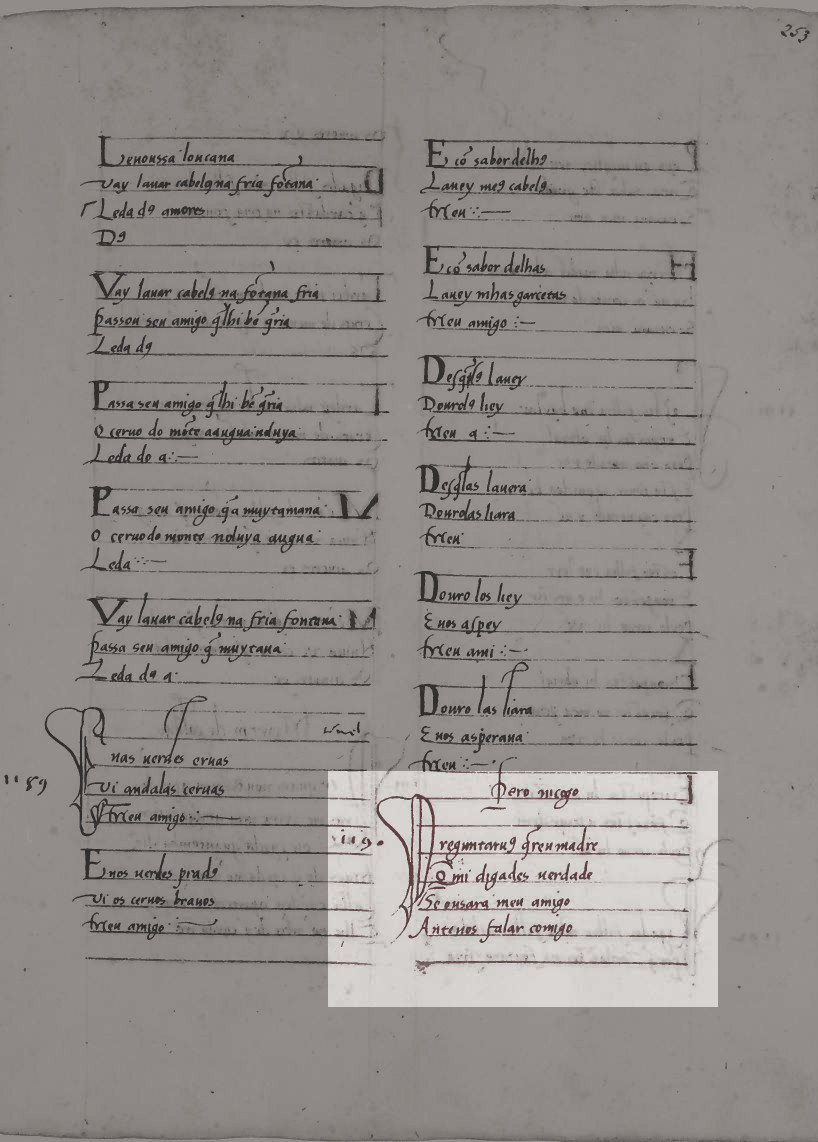 253
Lenoussa loucana
vay lauar cabelꝯ na fria fõtana
Leda dꝯ amores
Dꝯ
Vay lauar cabelꝯ na fõtana fria
passou seu amigo q̃lhi bẽ q̃ria
Leda dꝯ
Passa seu amigo q̃ lhi bẽ q̃ria
o ceruo do mõte aaugua uoluya
Leda do a
Passa seu amigo q̃a muytamaua
o ceruo do monte uoluya augua
Leda
Vay lauar cabelꝯ na fria fontana
passa seu amigo q̃ muytaua
Leda dꝯ a
1189
nas uerdes eruas
vi andalas ceruas
meu amigo
Enos uerdes pradꝯ
vi os ceruos brauos
meu amigo
E cõ sabor delhꝯ
Lauey meꝯ cabelꝯ
meu
E cõ sabor delhas
Lauey mhas garcetas
meu amigo
Desq̃lꝯ lauey
Dourolꝯ liey
meu a
Desq̃las lauara
Dourolas liara
meu
Douro los liey
Enos aspey
meu ami
Douro las liara
Enos asperaua
meu
Pero meogo
119.
Preguntaruꝯ q̃reu madre
Q̃ mi digades uerdade
Se ousara meu amigo
Anteuos falar comigo